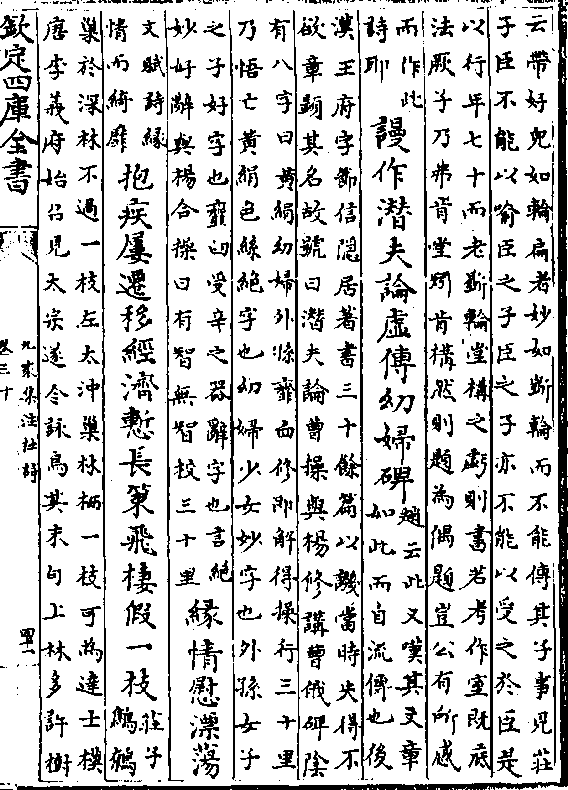 云帶好兒如輪扁者妙如斲輪而不能傳其子事見莊
子臣不能以喻臣之子臣之子亦不能以受之於臣是
以行年七十而老斲輪堂構之虧則書若考作室既底
法厥子乃弗肯堂矧肯構然則題為偶題豈公有所感
而作此
詩耶
謾作潛夫論虛傳幼婦碑
趙云此又嘆其文章
如此而自流傳也後
漢王府字節信隱居著書三十餘篇以譏當時失得不
欲章顯其名故號曰潛夫論曹操與楊修讀曹俄碑陰
有八字曰黃絹幼婦外孫虀臼修即解得操行三十里
乃悟亡黃絹色絲絕字也幼婦少女妙字也外孫女子
之子好字也虀臼受辛之器辭字也言絕
妙好辭與楊合操曰有智無智校三十里
緣情慰漂蕩
文賦詩緣
情而綺靡
抱疾屢遷移經濟慙長策飛棲假一枝
莊子
鷦鷯
巢於深林不過一枝左太沖巢林栖一枝可為達士模
唐李義府始召見太宗遂令詠烏其末句上林多許樹
欽定四庫全書
九家集注杜詩
卷三十